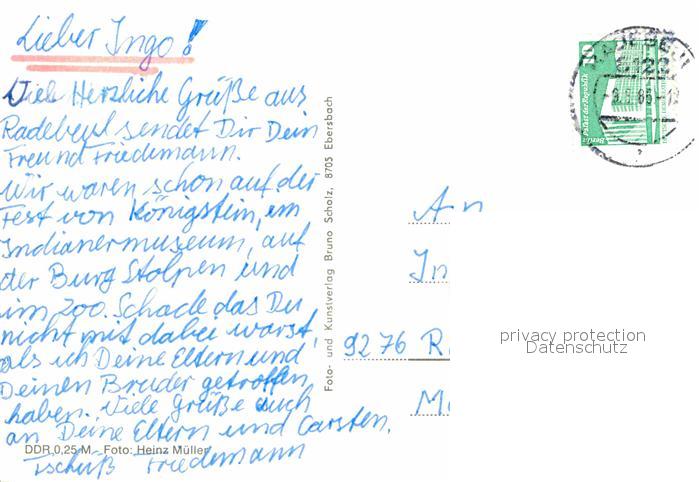 Lieber Ingo!
Viele Herzliche Grüße aus
Radebeul sendet Dir Dein
Freund Friedemann.
Wir waren schon auf der
Fest von Königstein, im
Indianermuseum, auf
der Burg Stolpen und
im Zoo. Schade das Du
nicht mit dabei warst,
als ich Deine Eltern und
Deinen Bruder getroffen
haben. Viele Grüße auch
an Deine Eltern und Carsten.
Tschüß Friedemann
DDR 0,25 M Foto: Heinz Müller
Foto- und Kunstverlag Bruno Scholz, 8705 Ebersbach
10
Berlin, Palast der Republik
An
In
9276 R
M
privacy protection
Datenschutz